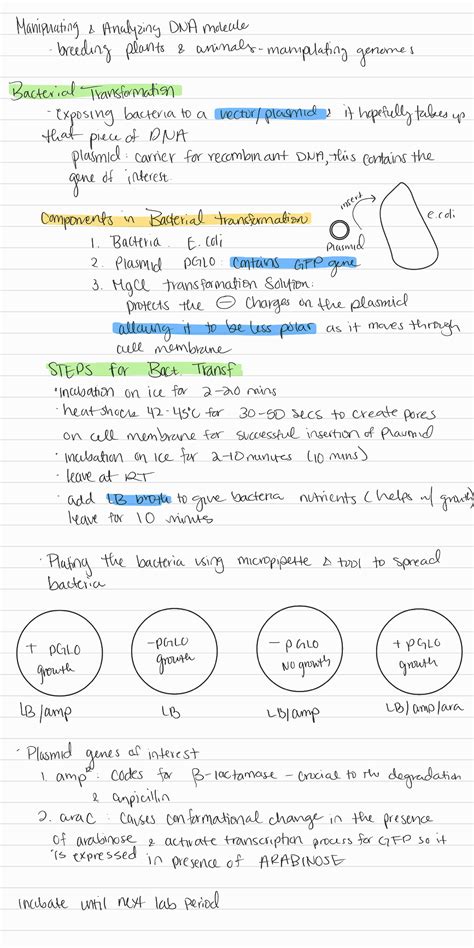 Manipulating & Analyzing DNA molecule
- breeding plants & animals - manipulating genomes
Bacterial Transformation
- Exposing bacteria to a vector/plasmid & it hopefully takes up
that piece of DNA
plasmid: carrier for recombinant DNA, this contains the
gene of interest.
Components in Bacterial transformation
insert
e.coli
Plasmid
1. Bacteria: E. coli
2. Plasmid PGLO: contains GFP gene
3. MgCl transformation Solution:
protects the ⊖ Charges on the plasmid
allowing it to be less polar as it moves through
cell membrane
STEPS for Bact. Transf
• Incubation on ice for 2-20 mins
• heat shock 42-45°C for 30-50 secs to create pores
on cell membrane for successful insertion of Plasmid
• incubation on ice for 2-10 minutes (10 mins)
• leave at RT
• add LB broth to give bacteria nutrients (helps w/ growth)
leave for 10 minutes
• Plating the bacteria using micropipette & tool to spread
bacteria
+ PGLO
growth
-PGLO
growth
- PGLO
NO growth
+ PGLO
growth
LB/amp
LB
LB/amp
LB/amp/ara
• Plasmid genes of interest
1. amp^R: codes for β-lactamase - crucial to the degradation
& ampicillin
2. araC: causes conformational change in the presence
of arabinose & activate transcription process for GFP so it
is expressed in presence of ARABINOSE
Incubate until next lab period